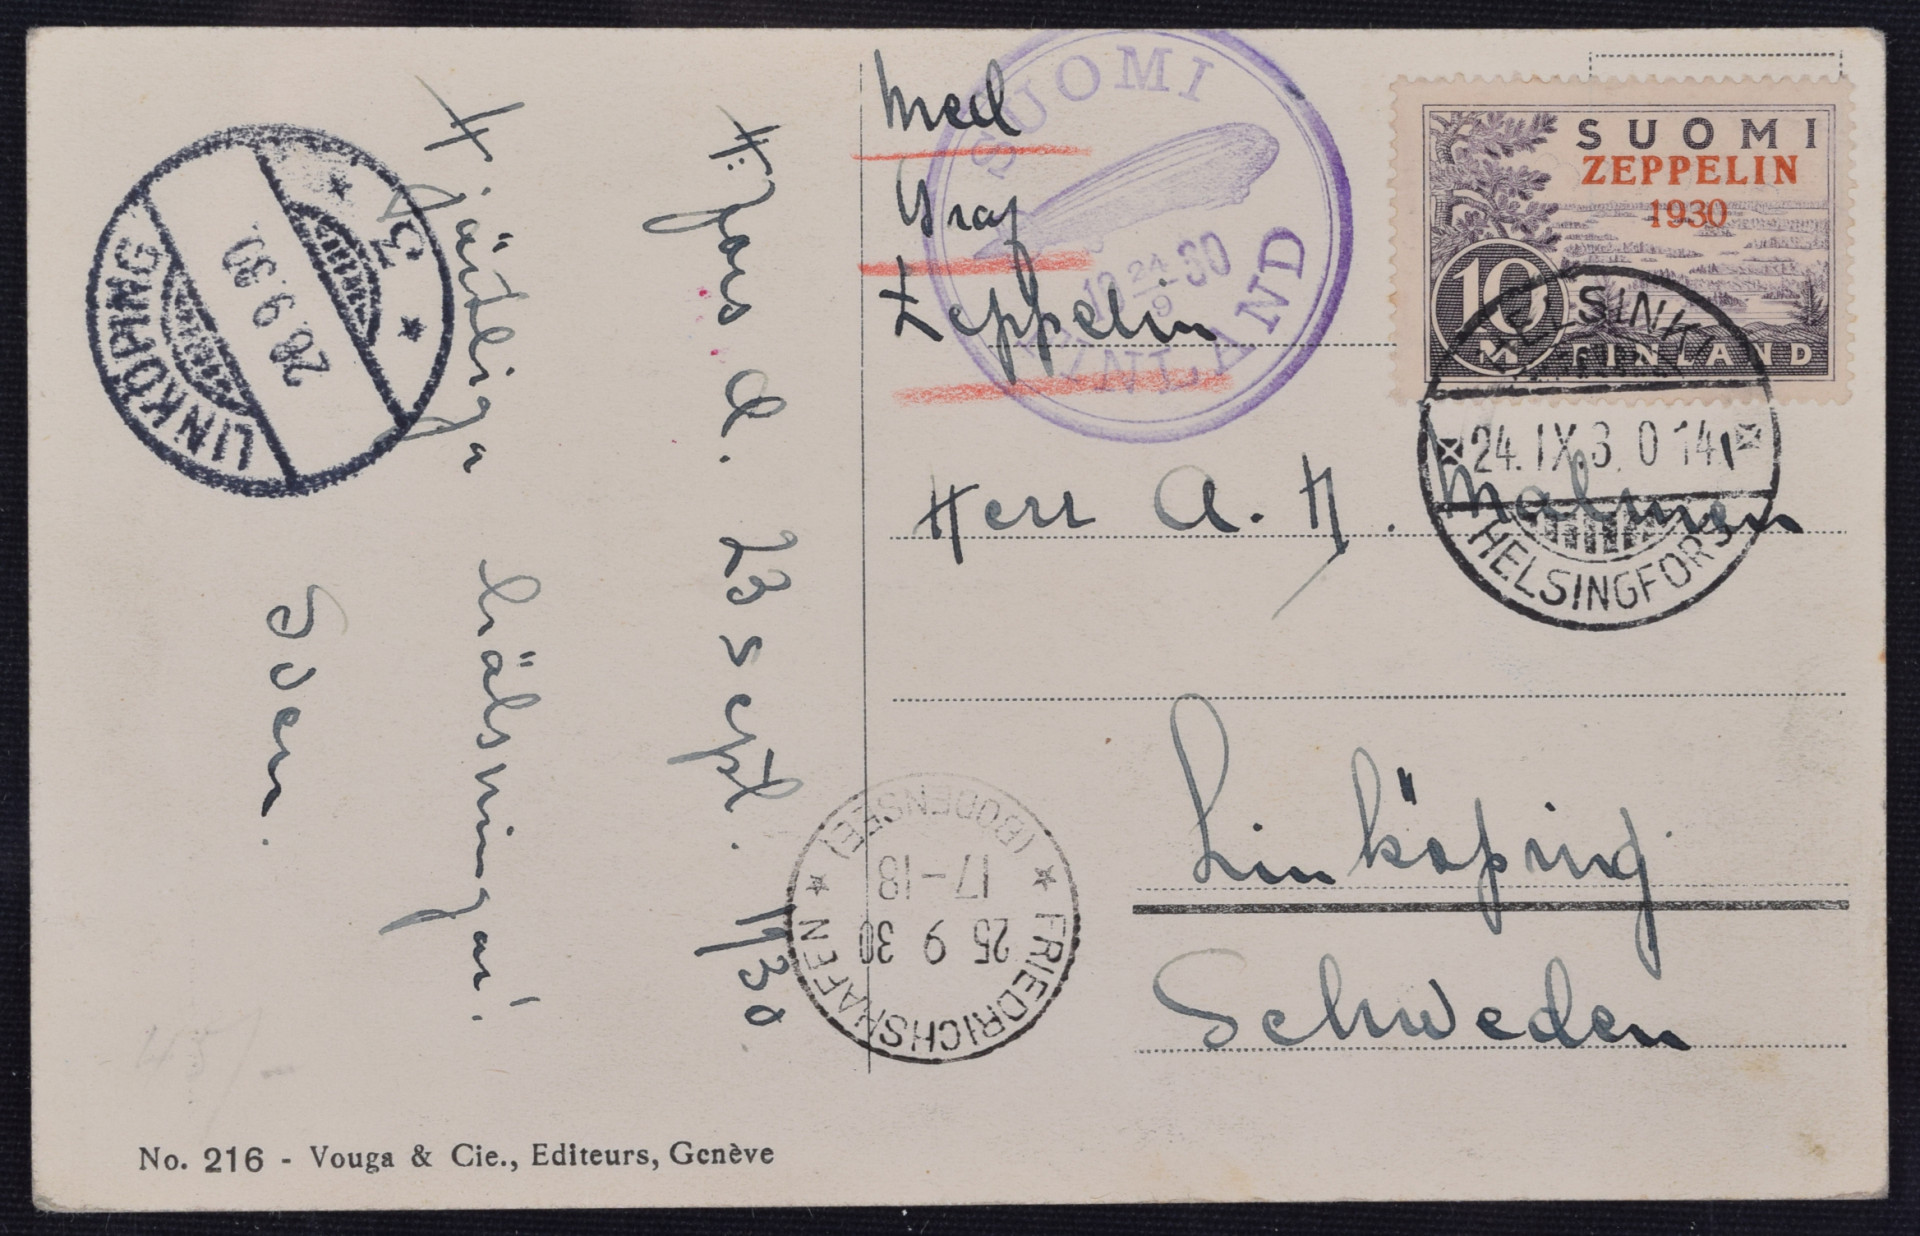 LINKÖPING
28.9.30.
3
H:fors d. 23 sept. 1930
Hjärtliga hälsningar!
Sven.
Med
Graf
Zeppelin
SUOMI
19 24/9 30
FINLAND
SUOMI
ZEPPELIN
1930
10
M
FINLAND
HELSINKI
24.IX.3.0 14.
HELSINGFORS
Herr A. H. Malmen
Linköping
Schweden
FRIEDRICHSHAFEN
25 9 30
17-18
(BODENSEE)
No. 216 - Vouga & Cie., Editeurs, Genève